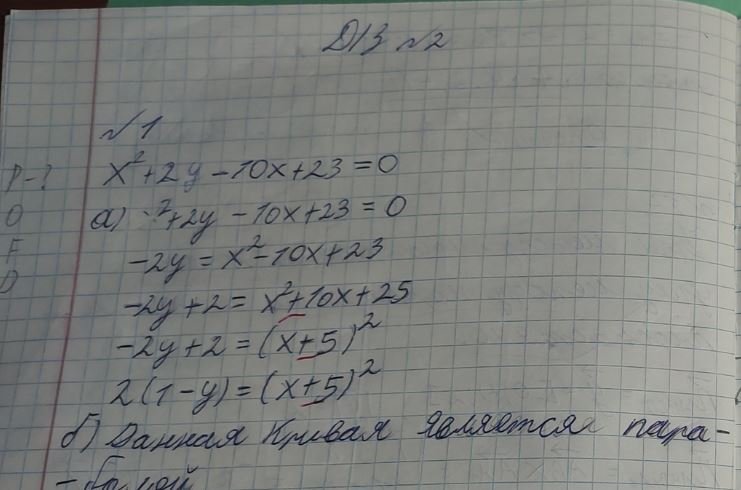 Д/З №2
№1
x²+2y-10x+23=0
P-?
а) ²+2y-10x+23=0
O
-2y=x²-10x+23
F
D
-2y+2=x²+10x+25
-2y+2=(x+5)²
2(1-y)=(x+5)²
б) Данная Кривая является пара-
-болой